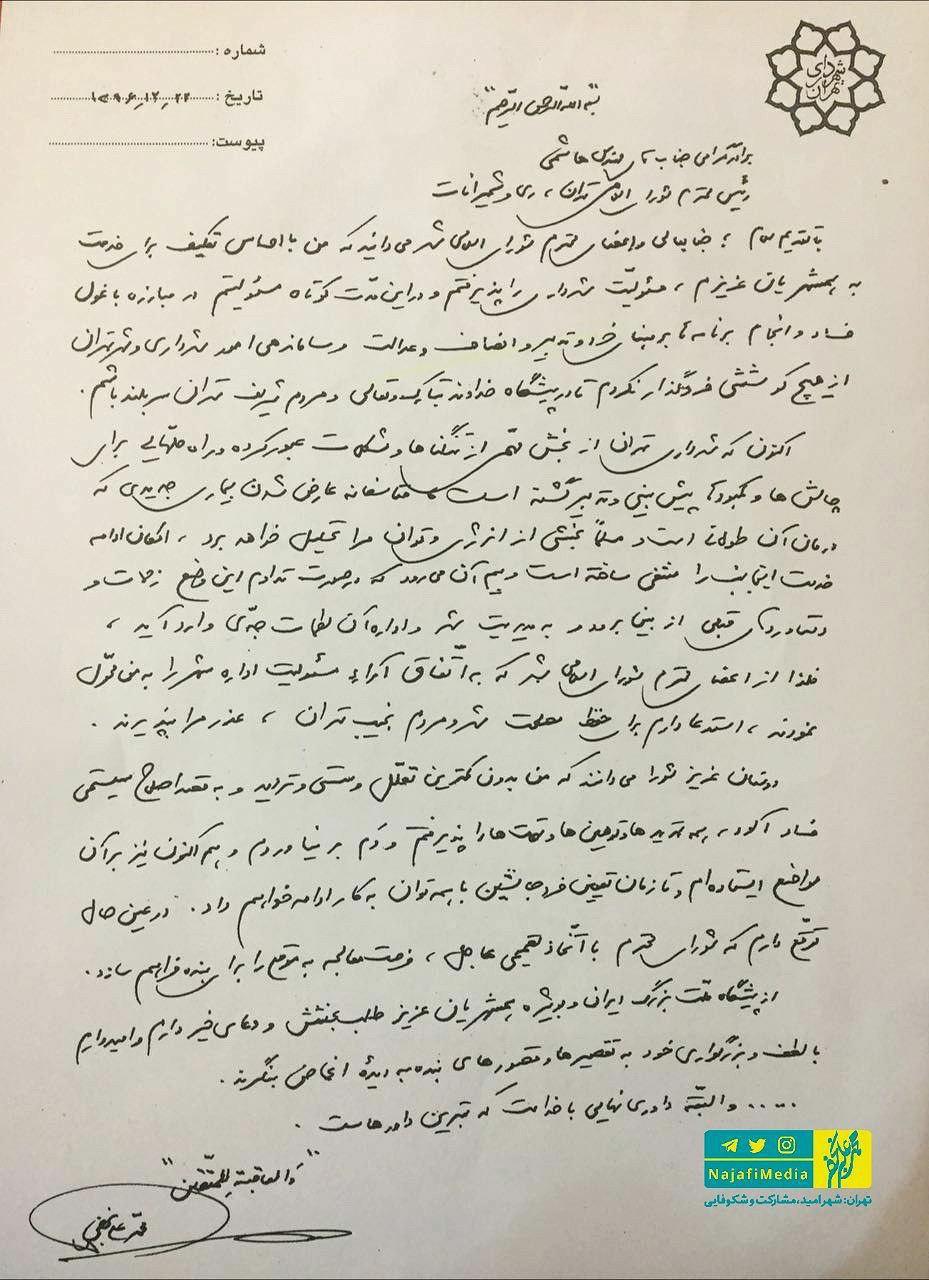 شهرداری تهران
شماره :
تاریخ : ۱۳۹۶٫۱۲٫۲۲
پیوست:
"بسم الله الرحمن الرحیم"
برادر گرامی جناب آقای مهندس هاشمی
رئیس محترم شورای اسلامی تهران، ری و شمیرانات
با تقدیم سلام ؛ جنابعالی و اعضای محترم شورای اسلامی شهر می‌دانید که من با احساس تکلیف برای خدمت
به همشهریان عزیزم ، مسئولیّت شهرداری را پذیرفتم و در این مدّت کوتاه مسئولیتم در مبارزه با غول
فساد و انجام برنامه‌ها بر مبنای خرد و تدبیر و انصاف و عدالت و ساماندهی امور شهرداری و شهر تهران
از هیچ کوششی فروگذار نکردم تا در پیشگاه خداوند تبارک و تعالی و مردم شریف تهران سربلند باشم .
اکنون که شهرداری تهران از بخش مهمّی از تنگناها و مشکلات عبور کرده و راه حلهایی برای
چالش ها و کمبودها پیش بینی و تدبیر گشته است ، متأسفانه عارض شدن بیماری جدیدی که
درمان آن طولانی است و مسلماً بخشی از انرژی و توان مرا تحلیل خواهد برد ، امکان ادامه
خدمت اینجانب را منتفی ساخته است و بیم آن می‌رود که در صورت تداوم این وضع زحمات و
دستاوردهای قبلی از بین برود و به مدیریت شهر و اداره آن لطمات جدّی وارد آید ،
فلذا از اعضای محترم شورای اسلامی شهر که به اتّفاق آراء مسئولیت اداره شهر را به من محوّل
نمودند ، استدعا دارم برای حفظ مصلحت شهر و مردم نجیب تهران ، عذر مرا بپذیرند .
دوستان عزیز شورا می‌دانند که من بدون کمترین تعلّل و سستی و تردید و به قصد اصلاح سیستمی
فساد آلود ، همه تهدیدها و توهین ها و تهمت ها را پذیرفتم و دَم بر نیاوردم و هم اکنون نیز بر آن
مواضع ایستاده‌ام و تا زمان تعیین فرد جانشین با همه توان به کار ادامه خواهم داد . در عین حال
توقّع دارم که شورای محترم با اتّخاذ تصمیمی عاجل ، فرصت معالجه به موقع را برای بنده فراهم سازد .
از پیشگاه ملّت بزرگ ایران و بویژه همشهریان عزیز طلب بخشش و دعای خیر دارم و امیدوارم
با لطف و بزرگواری خود به تقصیرها و قصورهای بنده به دیدۀ اغماض بنگرند .
..... و البتّه داوری نهایی با خداست که بهترین داورهاست .
"وَالعاقِبَةُ لِلمُتَّقین"
محمّد علی نجفی
محمدعلی نجفی
NajafiMedia
تهران: شهر امید، مشارکت و شکوفایی